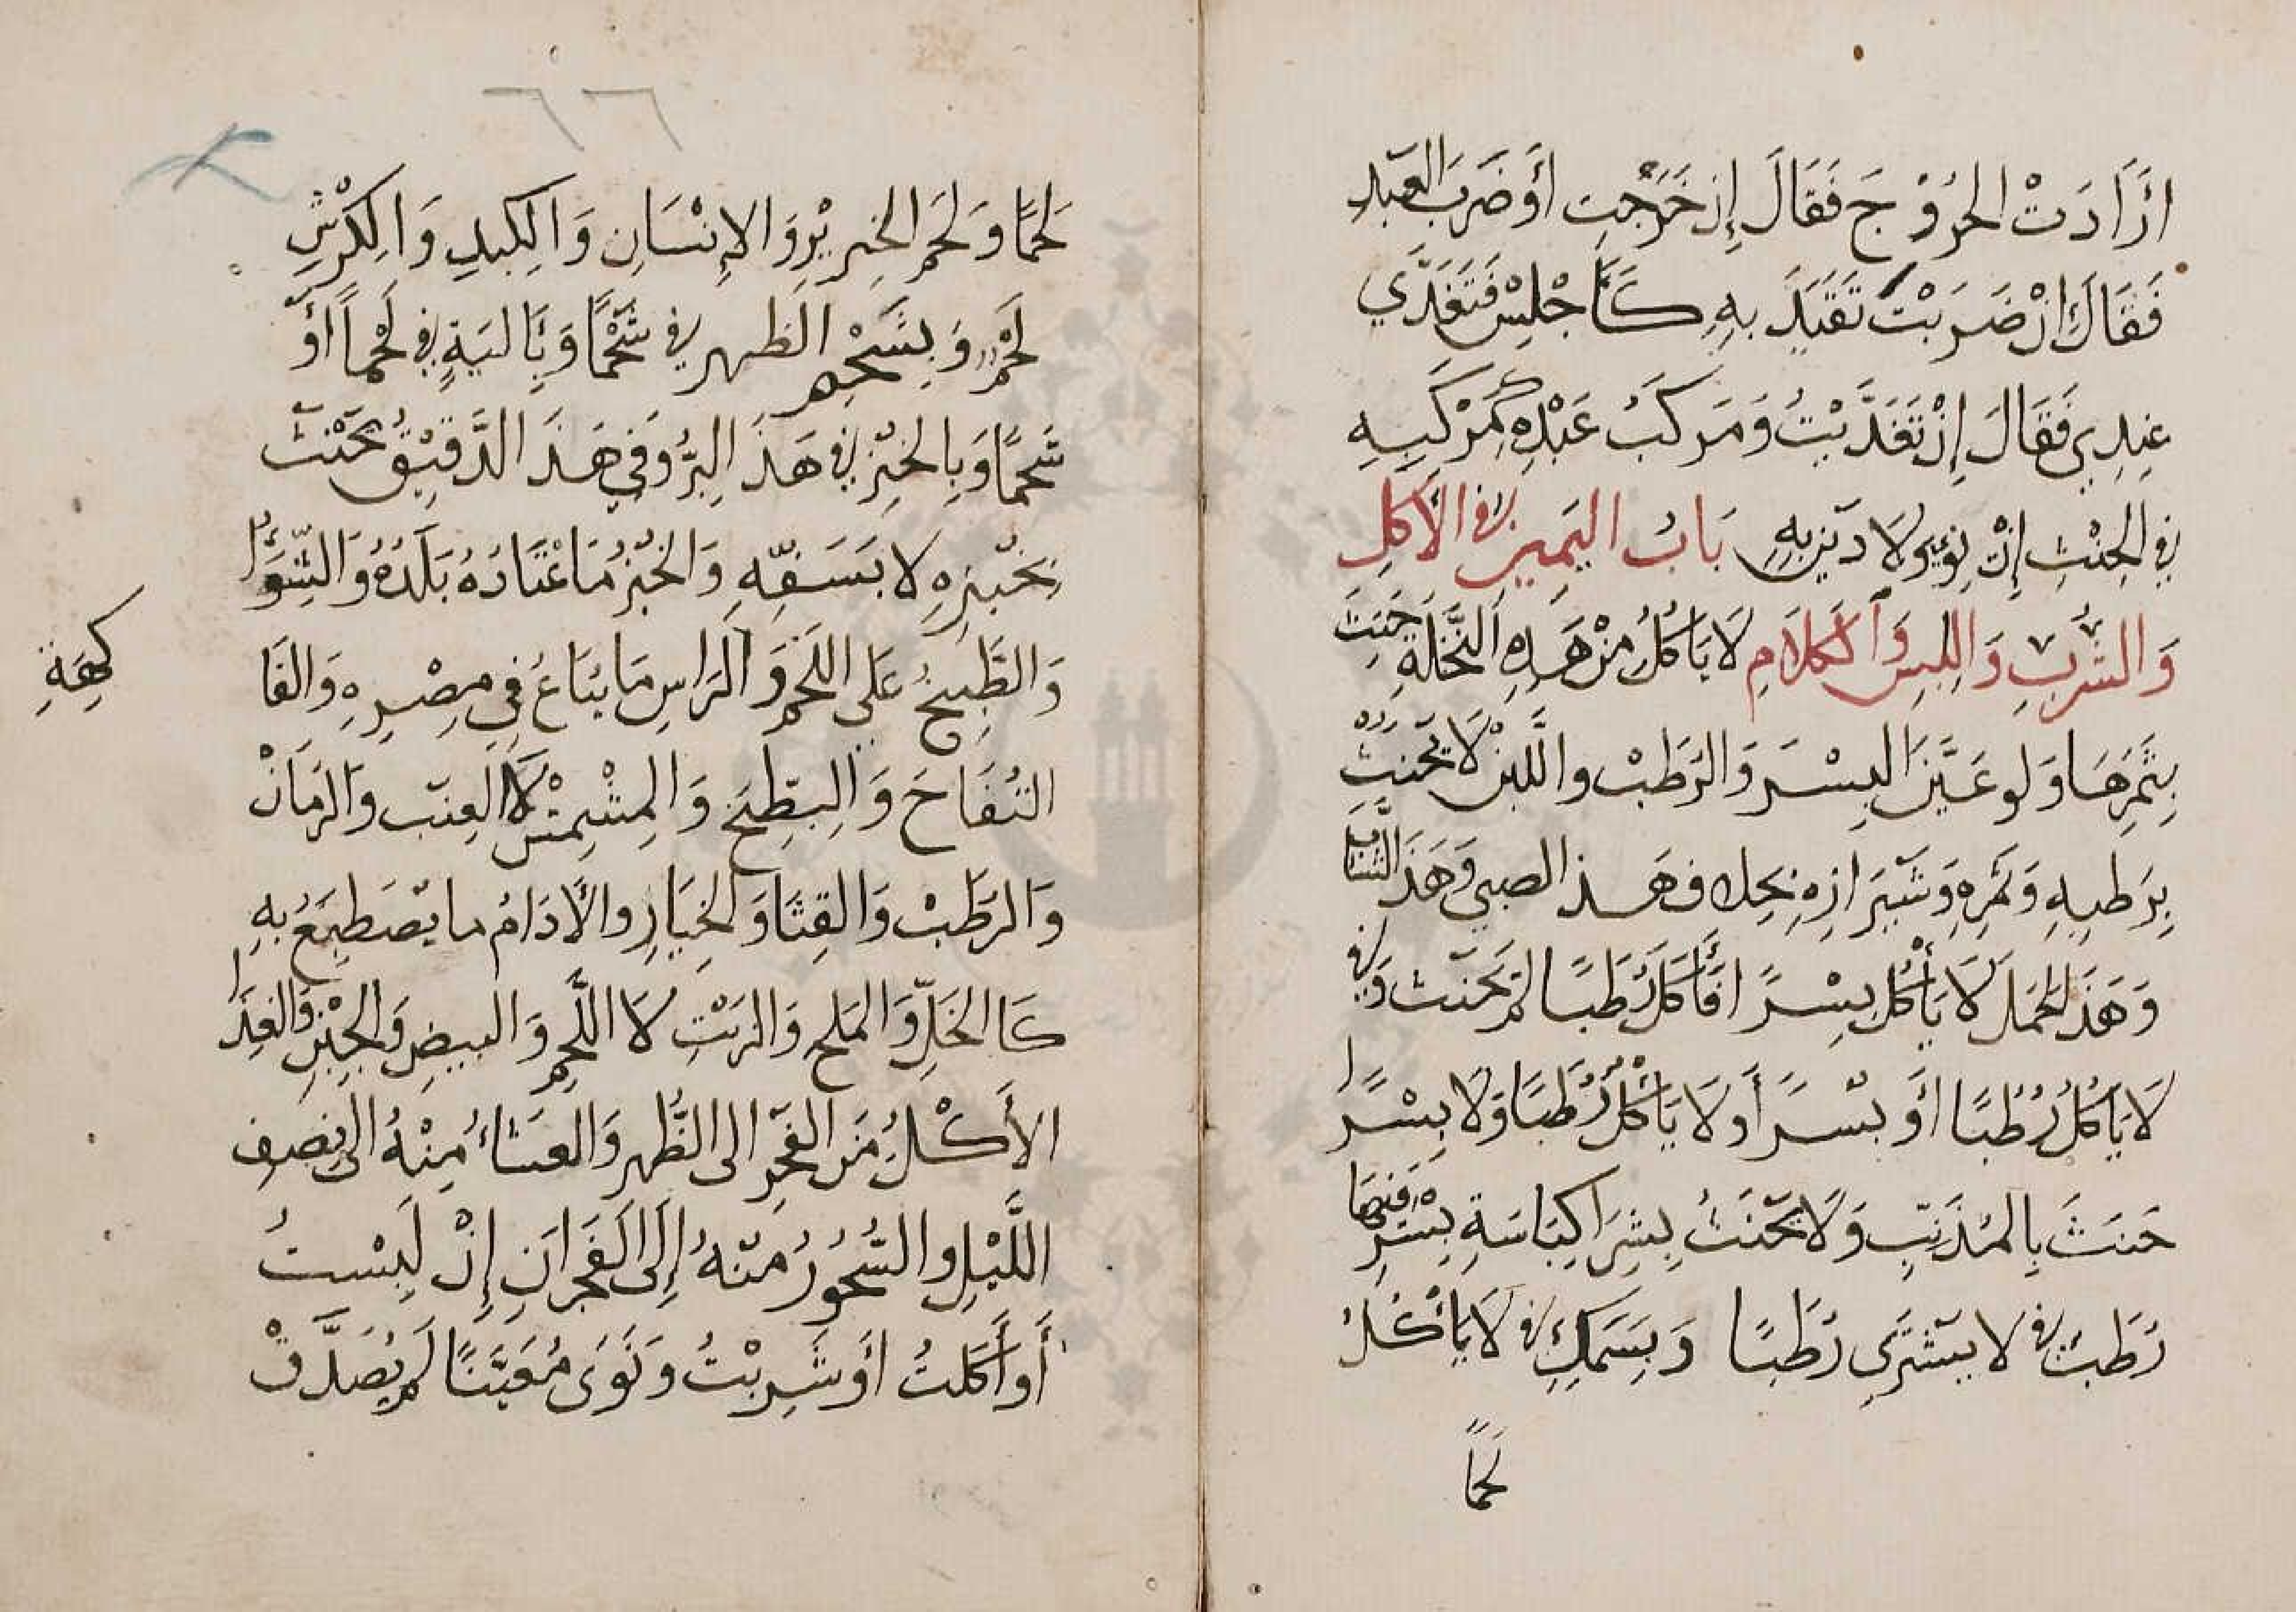 ارَادَتْ الخُرُوْجَ فَقَالَ إِنْ خَرَجْتِ أَوْ ضَرَبَ العَبْدِ
فَقَالَ إِنْ ضَرَبْتُ تَقَيَّدَ بِهِ كَاَجْلِسْ فَتَغَدَّي
عِنْدِي فَقَالَ إِنْ تَغَدَّيْتُ وَمَرْكَبُ عَبْدِهِ كَمَرْكَبِهِ
في الحِنْثِ إِنْ نوي ولا دين به بَابُ اليَمِين في الأَكْلِ
وَالشُّرْبِ وَاللبسِ وَالكَلَامِ لَا يَأْكُلُ مِنْ هَذِهِ النَّخْلَةِ حَنِثَ
بِثَمَرِهَا وَلو عَيَّنَ البِسْرَ وَالرَطبْ واللَّبَنْ لَا يَحْنَثُ
بِرَطبِهِ وَتَمْرِهِ وَشَيْرَازِهِ بخلاف هَذ الصبي وَهَذ الشَّابَّ
وَهَذ الحَمَلَ لَا يَأْكُل بِسْرًا فَأَكَلَ رُطَبًا لَمْ يَحْنَث وَفي
لَا يَأْكُلُ رُطَبًا أَوْ بِسْرًا أَو لَا يَأْكُلُ رُطَبًا وَلَا بِسْرًا
حَنَثَ بِالمُذَنِّبِ وَلَا يَحْنَثُ بِشِرَا كِبَاسَةِ بِسْرٍ فِيهَا
رُطَبٌ في لا يَشْتَرِي رُطَبًا وَبِسَمَكٍ في لَا يَأْكُلُ
لَحْمًا
٦٦
لَحْمًا وَلَحْمُ الخِنزِيْرِ وَالإِنْسَانِ وَالكِبْدِ وَالكِرْشِ
لَحْمٌ وَبِشَحْمِ الظهرِ في شَحْمًا وَبِأَليَةٍ في لَحْمًا أَوْ
شَحْمًا وَبِالخُبْزِ في هَذَ البُرُّ وَفي هَذَ الدَّقِيْقُ يَحْنَث
بخُبْزِهِ لا بِسَفِّهِ وَالخُبْزُ مَا عْتَادَهُ بَلَدُهُ وَالشِّوَاُ
وَالطَّبِيخُ عَلى اللحْمِ وَالرَاسِ مَا يُبَاعُ في مِصْرِهِ وَالفَا
كِهَةِ
التُفَاحَ وَالبِطِّيخَ وَالمِشْمِشْ لَا العِنَب وَالرمَانْ
وَالرطَبْ وَالقِثَا وَالخِيَارِ والأدَامُ ما يَصْطَبِغُ بِهِ
كَاالخَلِّ وَالمَلحِ وَالزَيْتِ لَا اللَّحْمِ وَالبيضِ وَالجِبْنِ وَالغدَا
الأَكْلُ مَنَ الفَجْرِ الى الظُّهرِ وَالعشاءُ مِنْهُ الى نصف
اللَّيْلِ والسُّحُورُ مِنْهُ إِلَى الفَجْرِ انِ إِنْ لَبِسْتُ
أَو أَكَلتُ أَو شَرِبْتُ وَنَوَى مُعَيَّنًا لَمْ يُصَدَّقْ